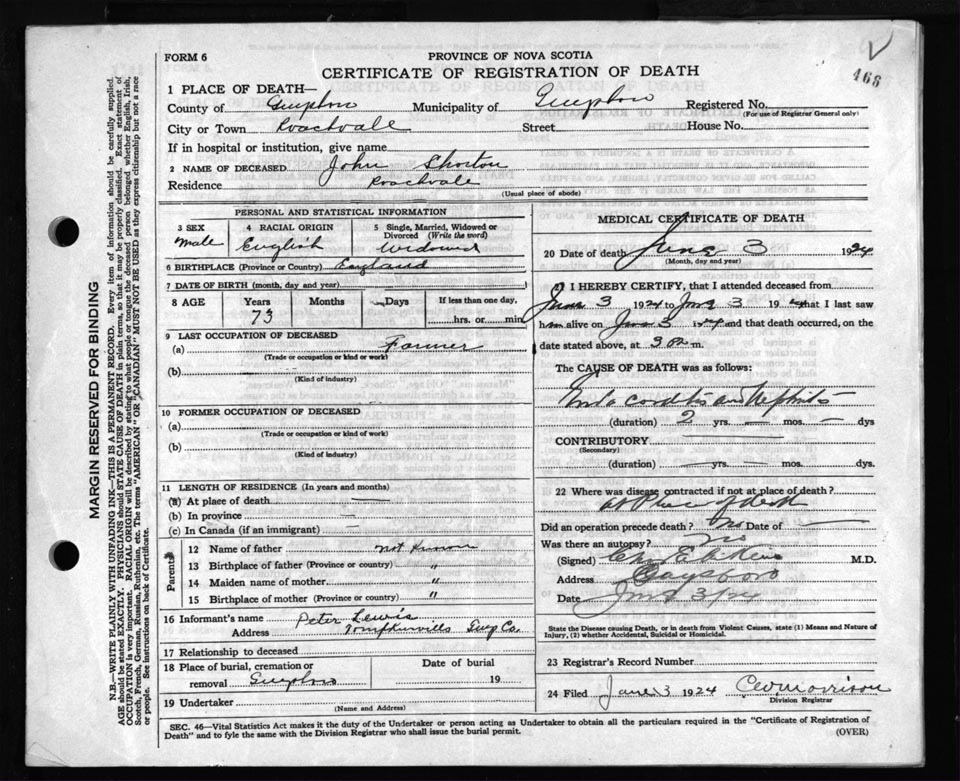 468
FORM 6
PROVINCE OF NOVA SCOTIA
CERTIFICATE OF REGISTRATION OF DEATH
1 PLACE OF DEATH—
County of Municipality of Registered No.
(For use of Registrar General only)
City or Town Roachvale Street House No.
If in hospital or institution, give name
2 NAME OF DECEASED John Shorton
Residence Roachvale
(Usual place of abode)
PERSONAL AND STATISTICAL INFORMATION
3 SEX 4 RACIAL ORIGIN 5 Single, Married, Widowed or Divorced (Write the word)
Male English Widowed
6 BIRTHPLACE (Province or Country) England
7 DATE OF BIRTH (month, day and year)
8 AGE Years Months Days If less than one day,
73 hrs. or min
9 LAST OCCUPATION OF DECEASED
(a) Farmer
(Trade or occupation or kind of work)
(b)
(Kind of industry)
10 FORMER OCCUPATION OF DECEASED
(a)
(Trade or occupation or kind of work)
(b)
(Kind of industry)
11 LENGTH OF RESIDENCE (In years and months)
(a) At place of death —
(b) In province —
(c) In Canada (if an immigrant) —
Parents
12 Name of father not known
13 Birthplace of father (Province or country) "
14 Maiden name of mother "
15 Birthplace of mother (Province or country) "
16 Informant's name Peter Lewis
Address
17 Relationship to deceased
18 Place of burial, cremation or removal Date of burial 19
19 Undertaker
(Name and Address)
MEDICAL CERTIFICATE OF DEATH
20 Date of death June 3 1924
(Month, day and year)
I HEREBY CERTIFY, that I attended deceased from
June 3 1924 to June 3 1924 that I last saw
him alive on June 3 1924 and that death occurred, on the
date stated above, at 3 m.
The CAUSE OF DEATH was as follows:
Endocarditis and Nephritis
(duration) 2 yrs. — mos. — dys
CONTRIBUTORY —
(Secondary)
(duration) — yrs. — mos. dys.
22 Where was disease contracted if not at place of death?
at Place of death
Did an operation precede death? No Date of —
Was there an autopsy? No
(Signed) M.D.
Address Guysboro
Date June 3/24
State the Disease causing Death, or in death from Violent Causes, state (1) Means and Nature of
Injury, (2) whether Accidental, Suicidal or Homicidal.
23 Registrar's Record Number
24 Filed June 3 1924 Morrison
Division Registrar
SEC. 46—Vital Statistics Act makes it the duty of the Undertaker or person acting as Undertaker to obtain all the particulars required in the "Certificate of Registration of
Death" and to fyle the same with the Division Registrar who shall issue the burial permit.
(OVER)
MARGIN RESERVED FOR BINDING
N.B.—WRITE PLAINLY WITH UNFADING INK—THIS IS A PERMANENT RECORD. Every item of information should be carefully supplied.
AGE should be stated EXACTLY. PHYSICIANS should STATE CAUSE OF DEATH in plain terms, so that it may be properly classified. Exact statement of
OCCUPATION is very important. RACIAL ORIGIN will be described by stating to what people or tongue the deceased person belonged whether English, Irish,
Scotch, French, German, Russian, Ruthenian, etc. The terms "AMERICAN" OR "CANADIAN" MUST NOT BE USED as they express citizenship but not a race
or people. See instructions on back of Certificate.